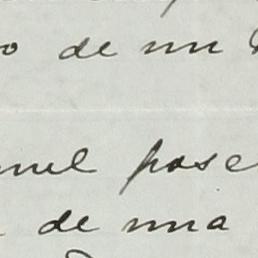 o de un
nel pose
de una